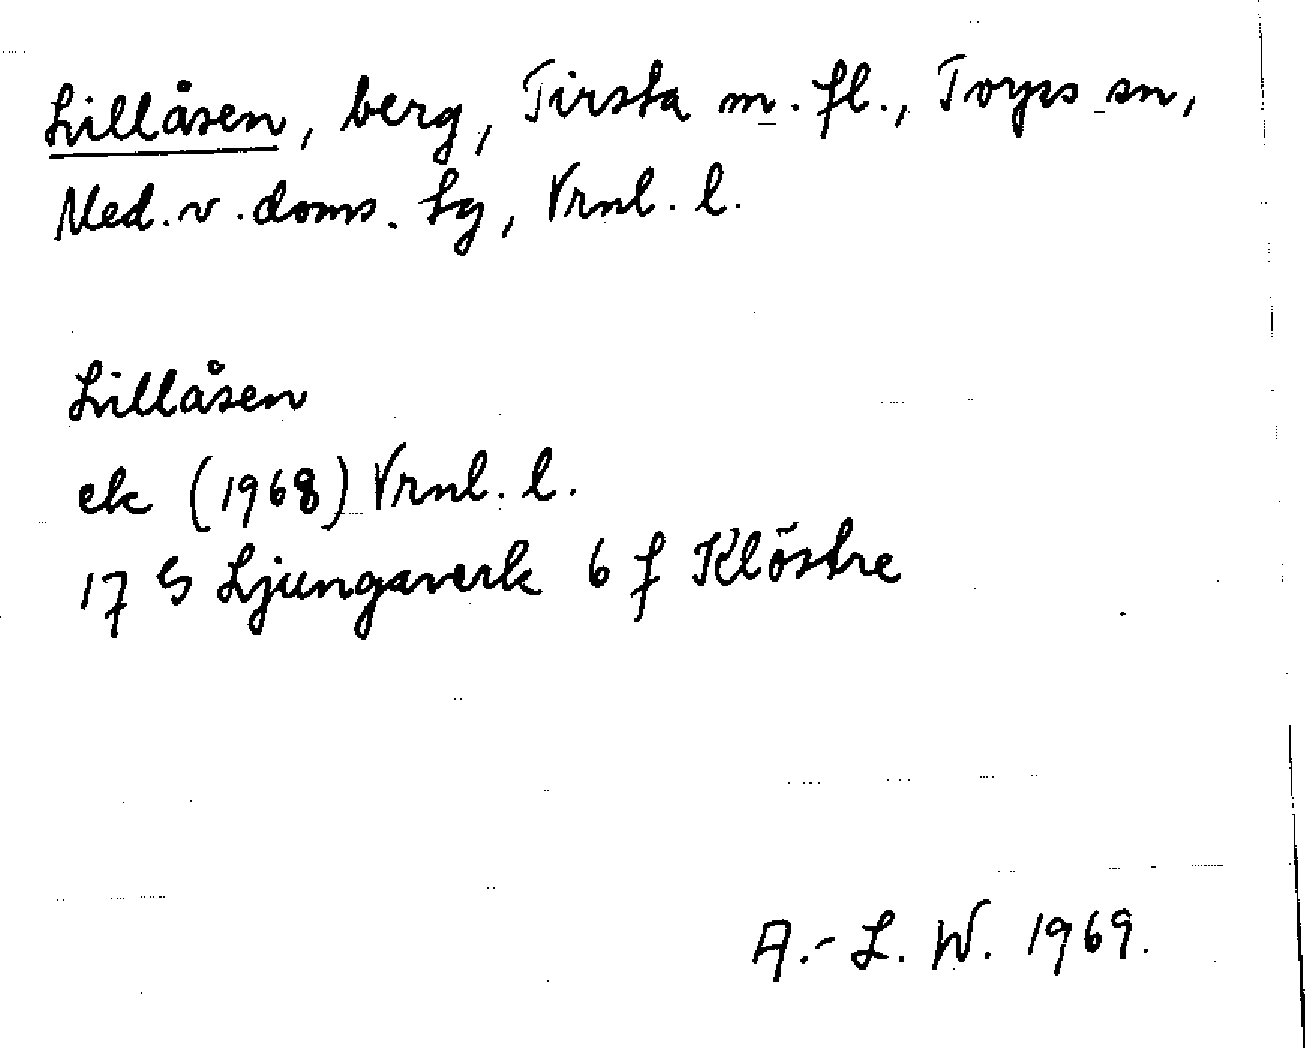 Lillåsen, berg, Tirsta m. fl., Torps sn,
Med. v. doms. tg, Vrnl. l.
Lillåsen
ek (1968) Vrnl. l.
17 S Ljungaverk 6 f Klöstre
A.-L. W. 1969.